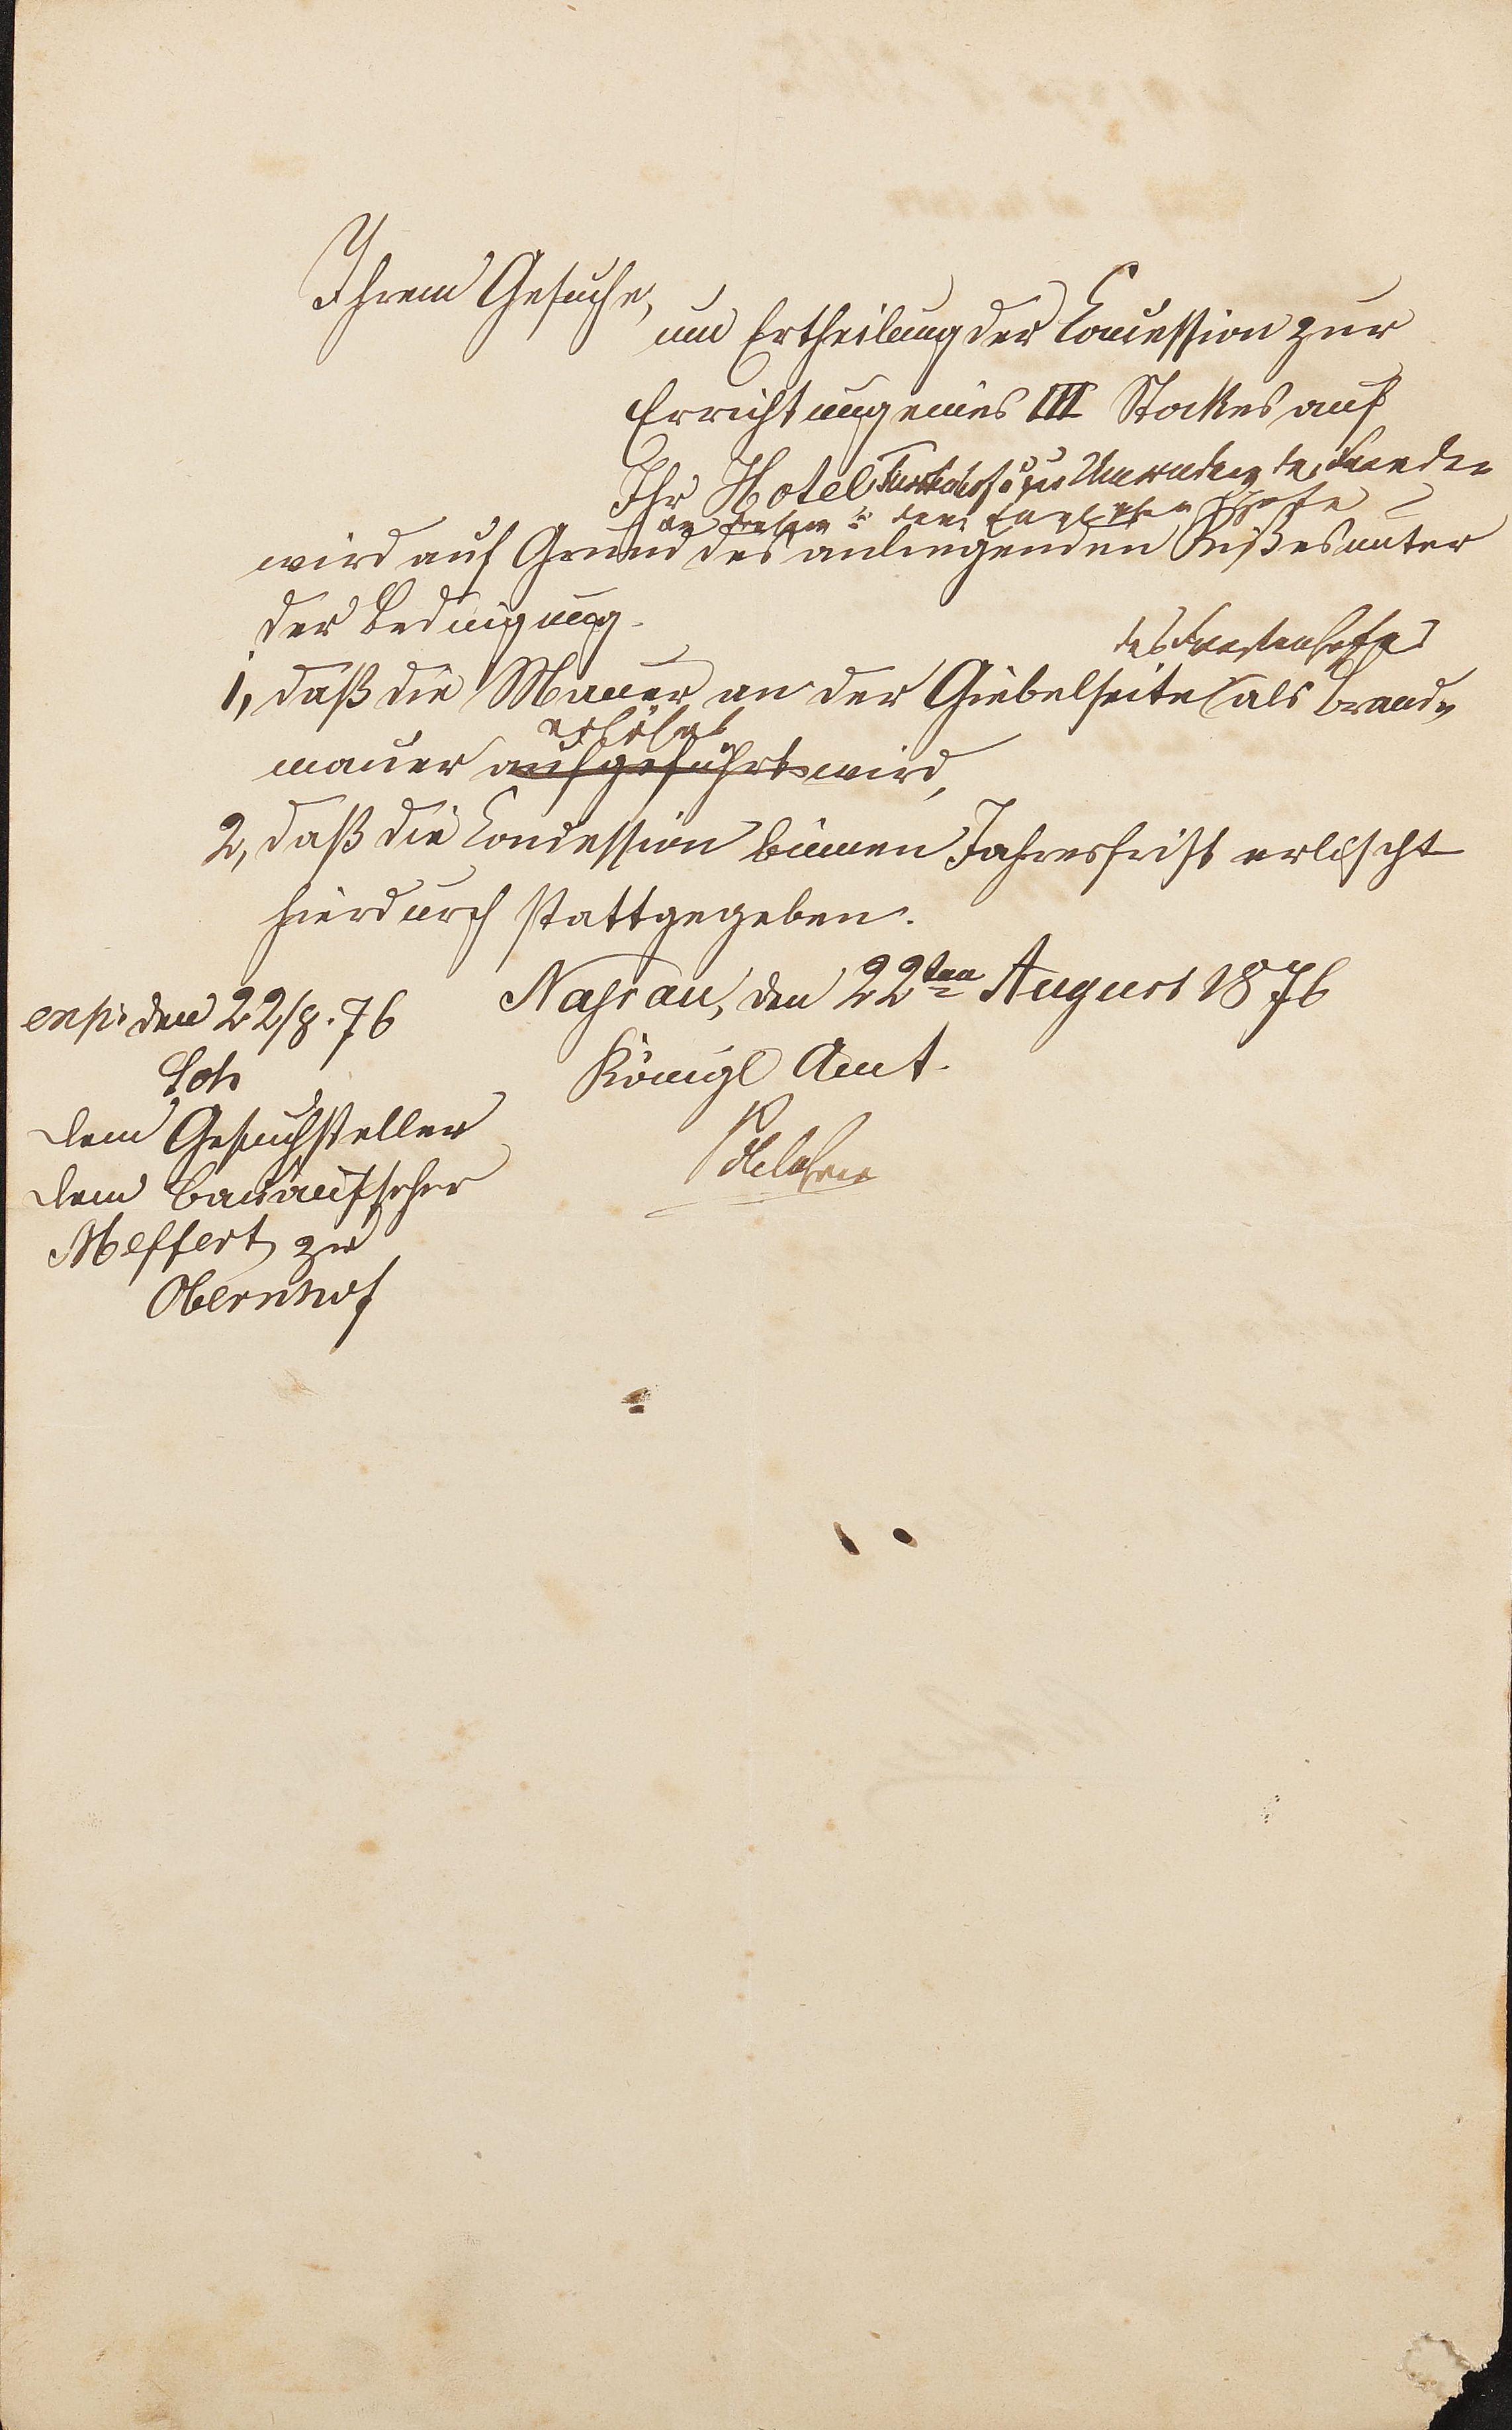 Ihrem Gesuche,
um Ertheilung der Concession zur
Errichtung eines III Stockes auf
Ihr Hotel Fürstenhof u. zur des
an dem Englischen Hofe
wird auf Grund des anliegenden Rißes unter
der Bedingung.
des Fürstenhofes
1, daß die Mauer an der Giebelseite als Brand-
erhöht
mauer aufgeführt wird,
2, daß die Concession binnen Jahresfrist erlischt
hierdurch stattgegeben.
Naßau, den 22ten August 1876
Königl Amt.
exp. den 22/8.76
dem Gesuchsteller
dem Bauaufseher
Meffert zu
Obernhof